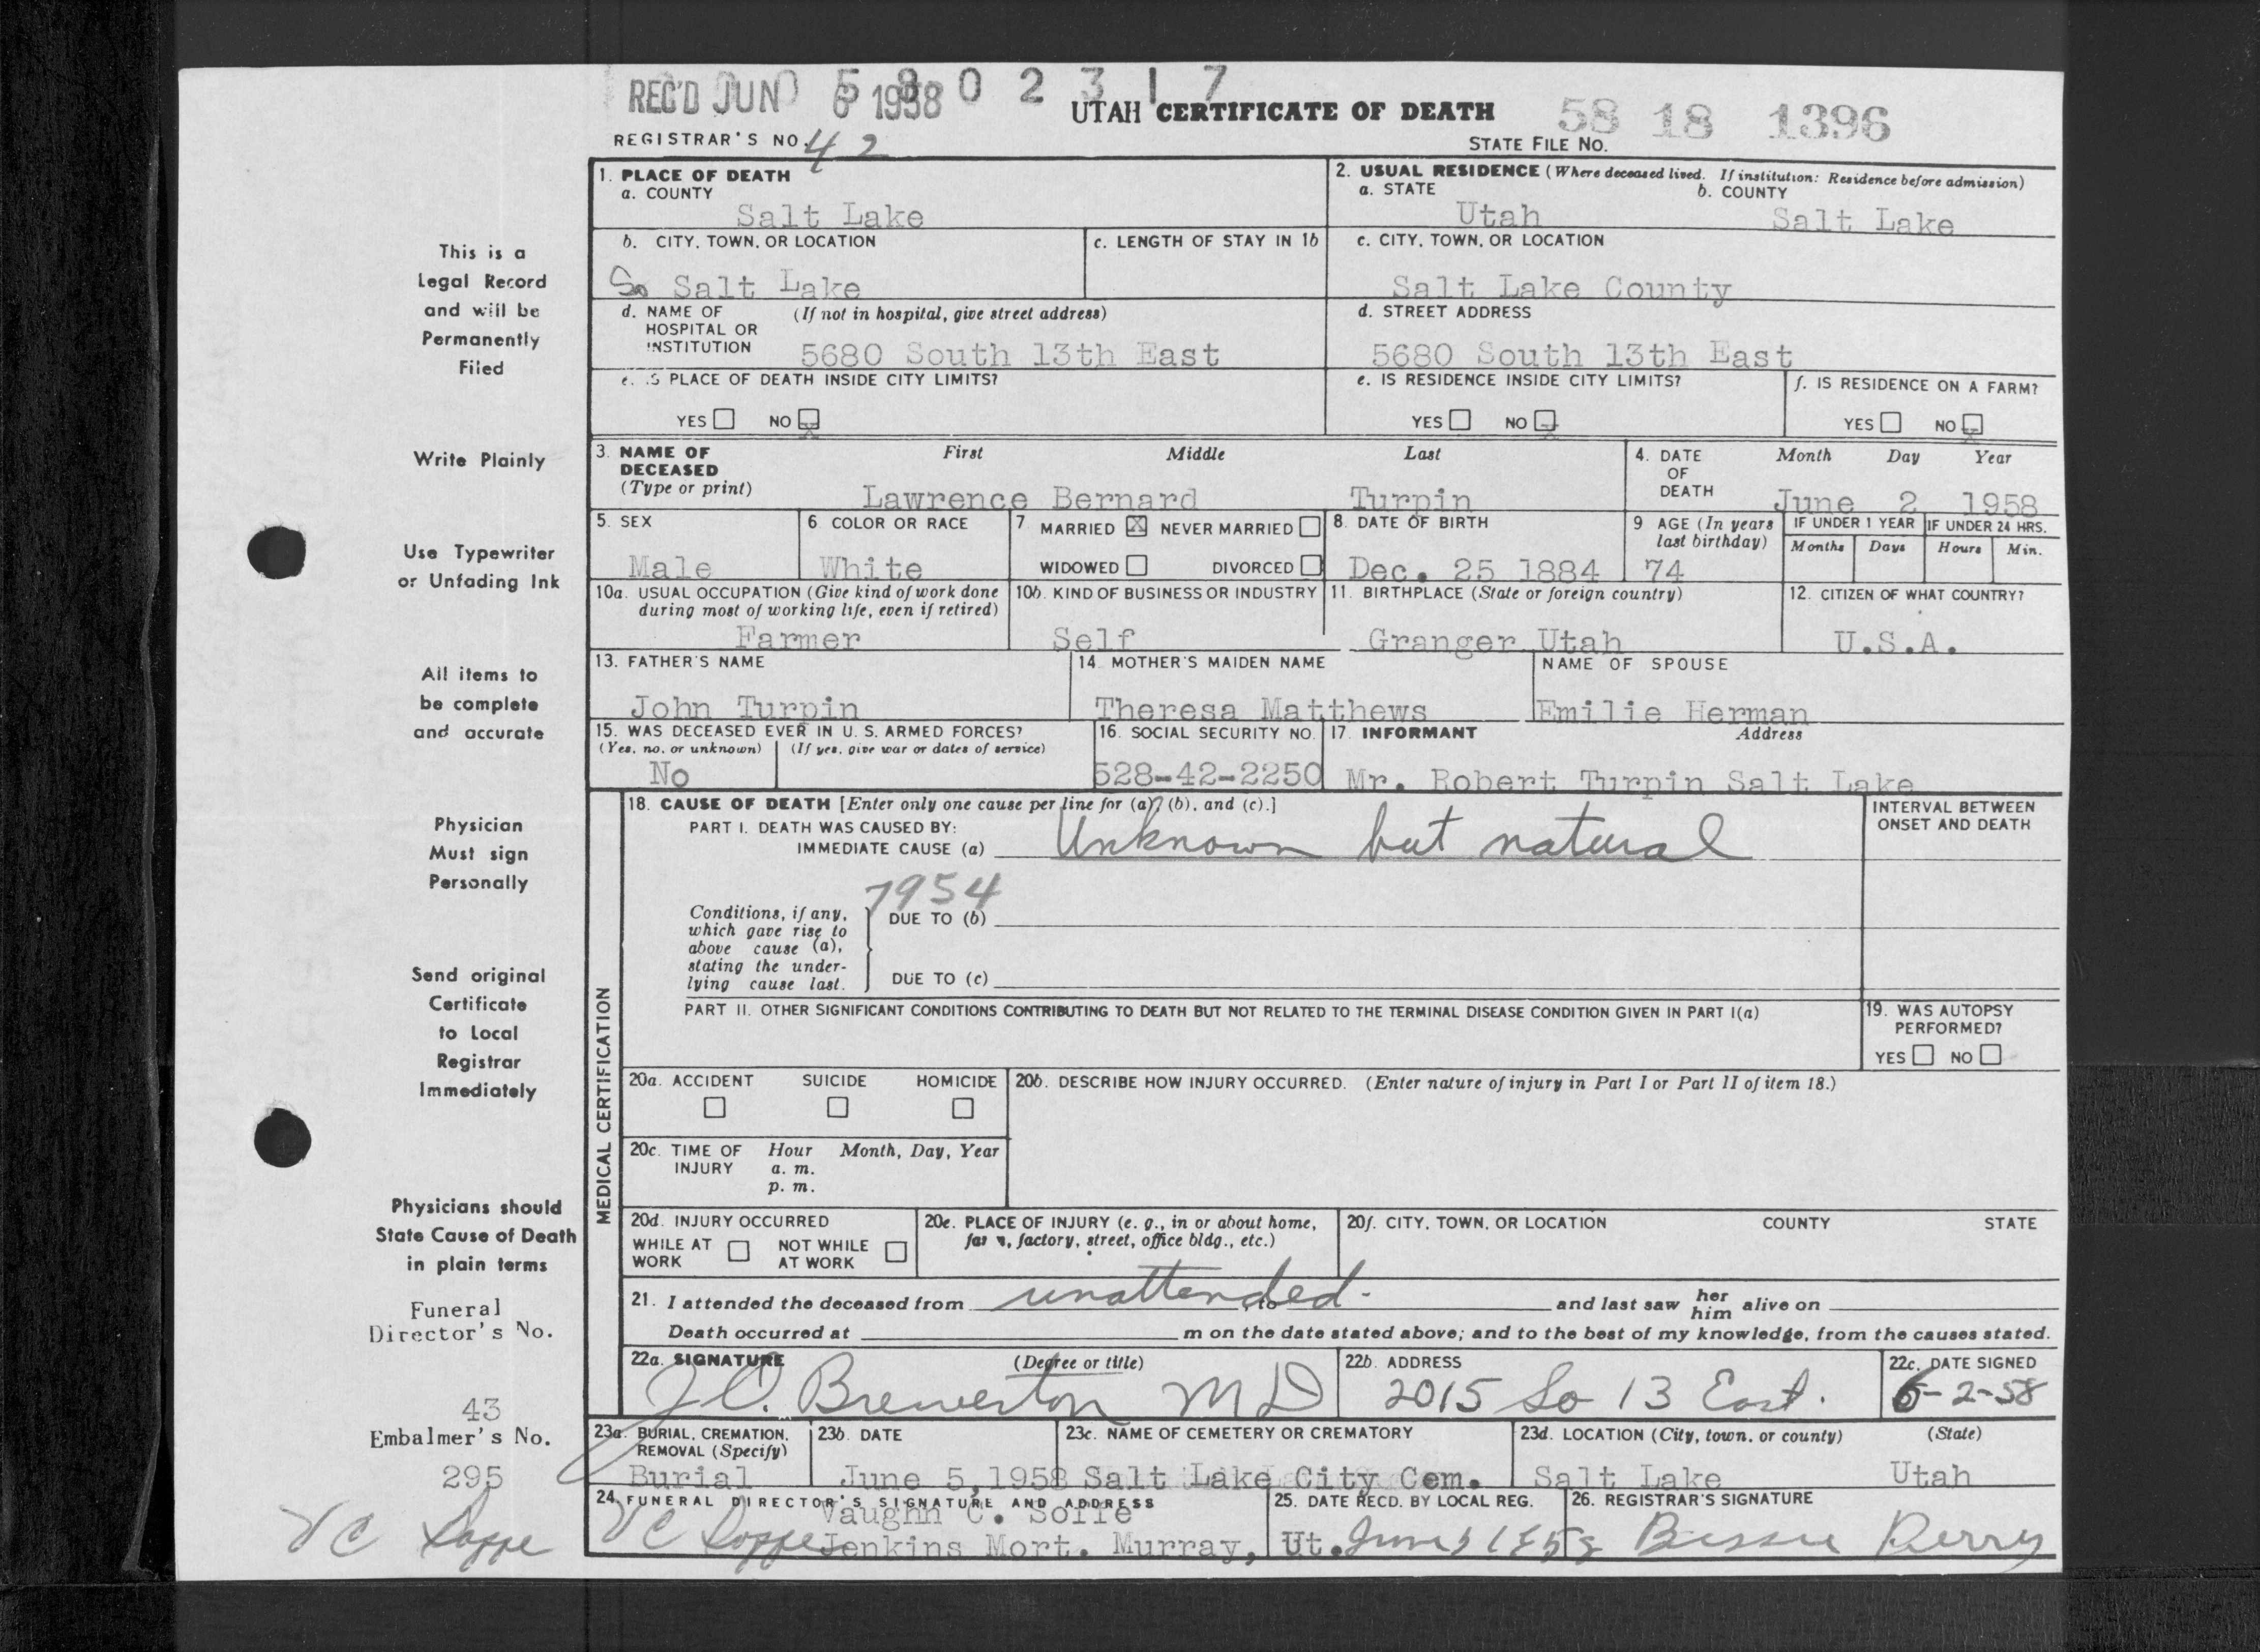 REC'D JUN 6 1958
5802317
UTAH CERTIFICATE OF DEATH
58 18 1396
REGISTRAR'S NO. 42
STATE FILE NO.
1. PLACE OF DEATH
a. COUNTY
Salt Lake
2. USUAL RESIDENCE (Where deceased lived. If institution: Residence before admission)
a. STATE b. COUNTY
Utah Salt Lake
b. CITY, TOWN, OR LOCATION
c. LENGTH OF STAY IN 1b
So Salt Lake
c. CITY, TOWN, OR LOCATION
Salt Lake County
d. NAME OF (If not in hospital, give street address)
HOSPITAL OR
INSTITUTION 5680 South 13th East
d. STREET ADDRESS
5680 South 13th East
e. IS PLACE OF DEATH INSIDE CITY LIMITS?
YES NO X
e. IS RESIDENCE INSIDE CITY LIMITS?
YES NO X
f. IS RESIDENCE ON A FARM?
YES NO X
3. NAME OF First Middle Last
DECEASED
(Type or print) Lawrence Bernard Turpin
4. DATE Month Day Year
OF
DEATH June 2 1958
5. SEX
Male
6 COLOR OR RACE
White
7 MARRIED X NEVER MARRIED
WIDOWED DIVORCED
8. DATE OF BIRTH
Dec. 25 1884
9 AGE (In years
last birthday)
74
IF UNDER 1 YEAR IF UNDER 24 HRS.
Months Days Hours Min.
10a. USUAL OCCUPATION (Give kind of work done
during most of working life, even if retired)
Farmer
10b. KIND OF BUSINESS OR INDUSTRY
Self
11. BIRTHPLACE (State or foreign country)
Granger Utah
12. CITIZEN OF WHAT COUNTRY?
U.S.A.
13. FATHER'S NAME
John Turpin
14. MOTHER'S MAIDEN NAME
Theresa Matthews
NAME OF SPOUSE
Emilie Herman
15. WAS DECEASED EVER IN U. S. ARMED FORCES?
(Yes, no, or unknown) (If yes, give war or dates of service)
No
16. SOCIAL SECURITY NO.
528-42-2250
17. INFORMANT Address
Mr. Robert Turpin Salt Lake
MEDICAL CERTIFICATION
18. CAUSE OF DEATH [Enter only one cause per line for (a), (b), and (c).]
PART I. DEATH WAS CAUSED BY:
IMMEDIATE CAUSE (a) Unknown but natural
INTERVAL BETWEEN
ONSET AND DEATH
7954
Conditions, if any,
which gave rise to
above cause (a),
stating the under-
lying cause last.
DUE TO (b)
DUE TO (c)
PART II. OTHER SIGNIFICANT CONDITIONS CONTRIBUTING TO DEATH BUT NOT RELATED TO THE TERMINAL DISEASE CONDITION GIVEN IN PART I(a)
19. WAS AUTOPSY
PERFORMED?
YES NO
20a. ACCIDENT SUICIDE HOMICIDE
20b. DESCRIBE HOW INJURY OCCURRED. (Enter nature of injury in Part I or Part II of item 18.)
20c. TIME OF Hour Month, Day, Year
INJURY a. m.
p. m.
20d. INJURY OCCURRED
WHILE AT NOT WHILE
WORK AT WORK
20e. PLACE OF INJURY (e. g., in or about home,
farm, factory, street, office bldg., etc.)
20f. CITY, TOWN, OR LOCATION COUNTY STATE
21. I attended the deceased from unattended. to and last saw her him alive on
Death occurred at m on the date stated above; and to the best of my knowledge, from the causes stated.
22a. SIGNATURE (Degree or title)
J C. Brewerton MD
22b. ADDRESS
2015 So 13 East.
22c. DATE SIGNED
6-2-58
23a. BURIAL, CREMATION,
REMOVAL (Specify)
Burial
23b. DATE
June 5, 1958
23c. NAME OF CEMETERY OR CREMATORY
Salt Lake City Cem.
23d. LOCATION (City, town, or county) (State)
Salt Lake Utah
24. FUNERAL DIRECTOR'S SIGNATURE AND ADDRESS
Vaughn C. Soffe
V C Soffe Jenkins Mort. Murray, Ut.
25. DATE RECD. BY LOCAL REG.
June 5 1958
26. REGISTRAR'S SIGNATURE
Bessie Perry
This is a
Legal Record
and will be
Permanently
Filed
Write Plainly
Use Typewriter
or Unfading Ink
All items to
be complete
and accurate
Physician
Must sign
Personally
Send original
Certificate
to Local
Registrar
Immediately
Physicians should
State Cause of Death
in plain terms
Funeral
Director's No.
43
Embalmer's No.
295
V C Soffe